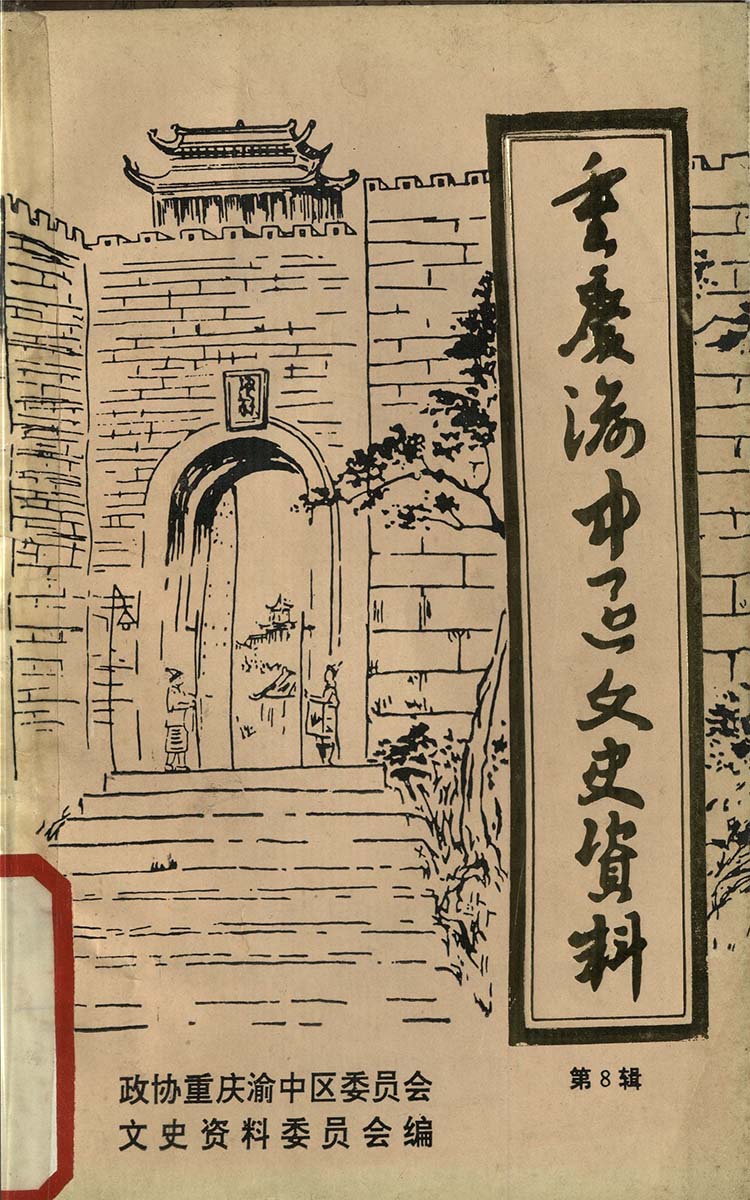 重慶渝中区文史資料
第8辑
政协重庆渝中区委员会
文史资料委员会编